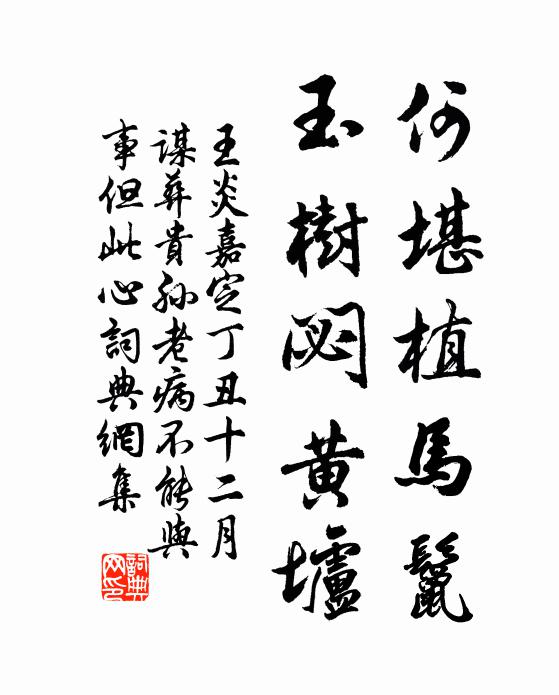 何堪植馬鬣
玉樹閟黃壚
王炎嘉定丁丑十二月
謀葬貴孫老病不能與
事但此心詞典網集
詞典网印